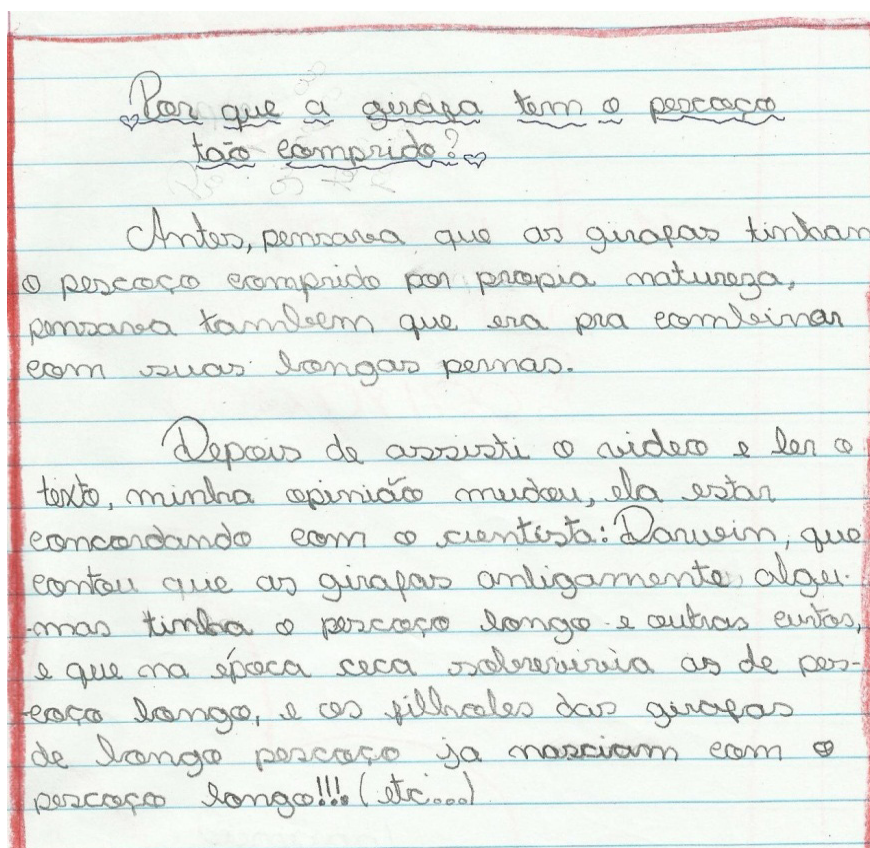 Por que a girafa tem o pescoço
tão comprido?
Antes, pensava que as girafas tinham
o pescoço comprido por propia natureza,
pensava tambem que era pra combinar
com suas longas pernas.
Depois de assisti o video e ler o
texto, minha opinião mudou, ela estar
concordando com o cientista: Darwin, que
contou que as girafas antigamente algu-
-mas tinha o pescoço longo e outras curtos,
e que na época ceca sobreviria as de pes-
-coço longo, e os filhotes das girafas
de longo pescoço ja nasciam com o
pescoço longo!!! (etc...)